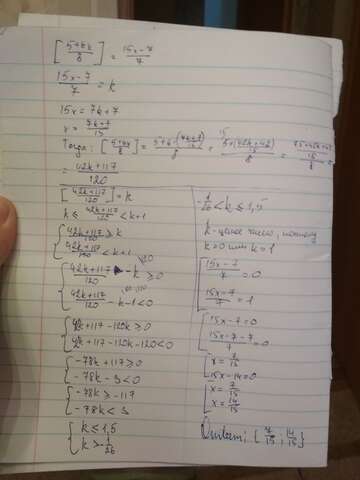 [5+6x/8] = 15x-7/7
15x-7/7 = k
15x = 7k+7
x = 7k+7/15
Тогда: [5+6x/8] = 5+6·(7k+7/15)/8 =
= 42k+117/120
[42k+117/120] = k
k ≤ 42k+117/120 < k+1
{42k+117/120 ≥ k
42k+117/120 < k+1
{42k+117/120 - k ≥ 0
42k+117/120 - k - 1 < 0
{42k+117-120k ≥ 0
42k+117-120k-120 < 0
{-78k+117 ≥ 0
-78k-3 < 0
{-78k ≥ -117
-78k < 3
{k ≤ 1,5
k > -1/26
-1/26 < k ≤ 1,5
k-целое число, поэтому
k=0 или k=1
[15x-7/7 = 0
15x-7/7 = 1
[15x-7=0
15x-7-7/7 = 0
[x = 7/15
15x-14=0
[x = 7/15
x = 14/15
Ответ: {7/15; 14/15}